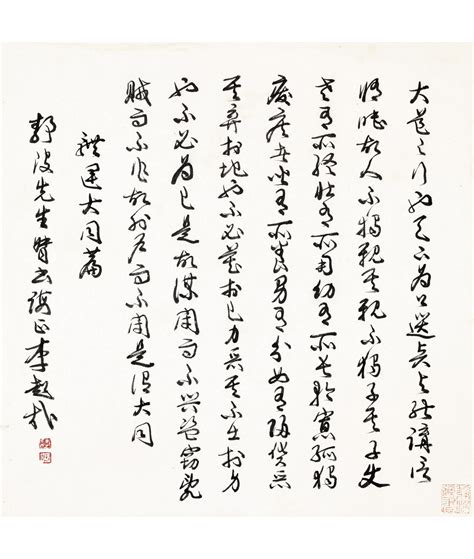 大道之行也天下為公選賢與能講信
修睦故人不獨親其親不獨子其子使
老有所終壯有所用幼有所長矜寡孤獨
廢疾者皆有所養男有分女有歸貨惡
其棄於地也不必藏於己力惡其不出於身
也不必為己是故謀閉而不興盜竊亂
賊而不作故外戶而不閉是謂大同
禮運大同篇
靜波先生督書誨正李超哉